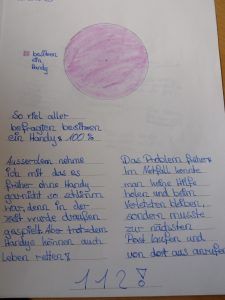 besitzen
ein
Handy
So viel aller
befragten besitzen
ein Handy: 100%
Ausserdem nehme
ich mit das es
früher ohne Handy
gar nicht so schlimm
war, denn in der
zeit wurde draußen
gespielt. Aber trotzdem
Handys können auch
Leben retten!
Das Problem früher:
Im Notfall konnte
man keine Hilfe
holen und beim
Verletzten bleiben,
sondern musste
zur nächsten
Post laufen und
von dort aus anrufen
112!